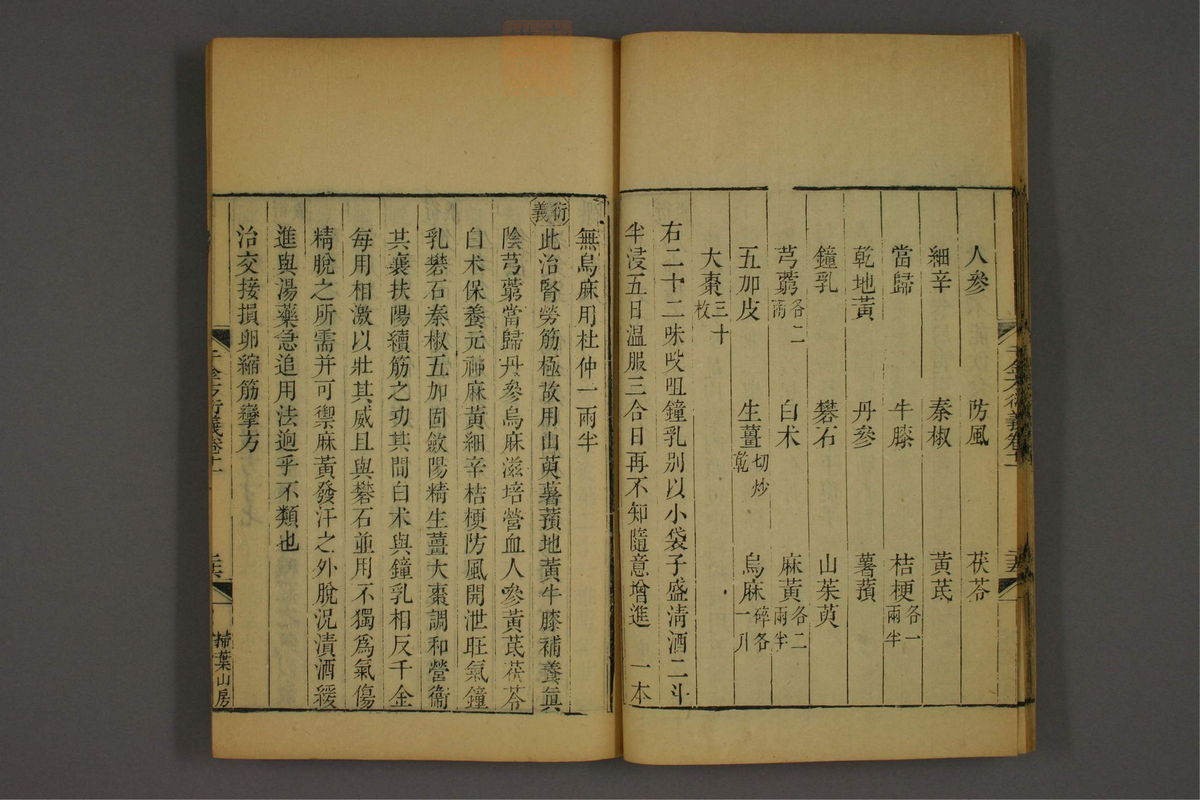 人參 防風 茯苓
細辛 秦椒 黃芪
當歸 牛膝 桔梗各一兩半
乾地黃 丹參 薯蕷
鐘乳 礬石 山茱萸
芎藭各二兩 白术 麻黃各二兩半
五加皮 生薑切炒乾 烏麻碎各一升
大棗三十枚
右二十二味㕮咀鐘乳別以小袋子盛淸酒二斗
半浸五日温服三合日再不知隨意增進 一本
千金方衍義卷十一
無烏麻用杜仲一兩半
衍義此治腎勞筋極故用山萸薯蕷地黃牛膝補養眞
陰芎藭當歸丹參烏麻滋培營血人參黃芪茯苓
白术保養元神麻黃細辛桔梗防風開泄旺氣鐘
乳礬石秦椒五加固斂陽精生薑大棗調和營衞
其襄扶陽續筋之功其間白术與鐘乳相反千金
每用相激以壯其威且與礬石並用不獨爲氣傷
精脫之所需并可禦麻黃發汗之外脫況漬酒緩
進與湯藥急追用法逈乎不類也
治交接損卵縮筋攣方
千金方衍義卷十一
掃葉山房